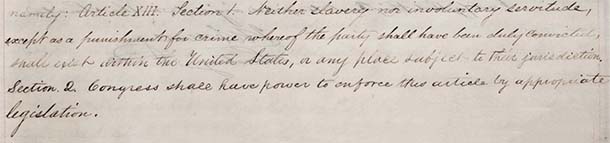 namely: Article XIII. Section 1. Neither slavery nor involuntary servitude,
except as a punishment for crime whereof the party shall have been duly convicted,
shall exist within the United States, or any place subject to their jurisdiction.
Section 2. Congress shall have power to enforce this article by appropriate
legislation.